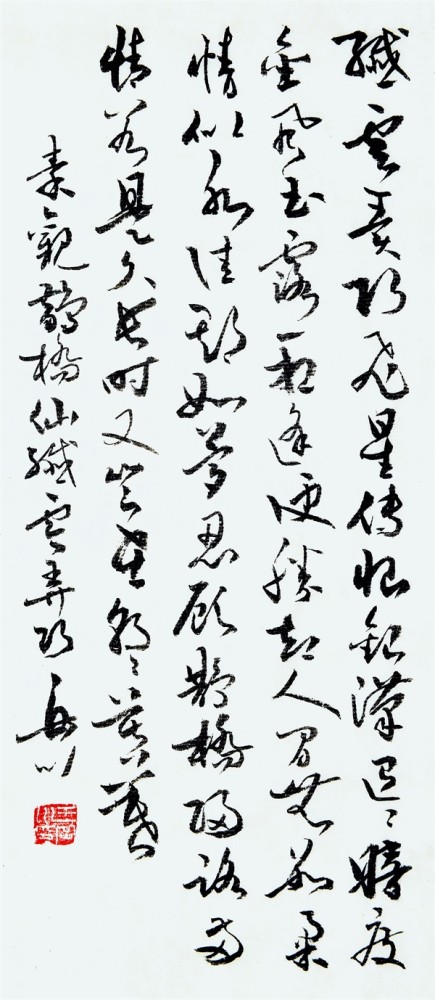 纖雲弄巧飛星傳恨銀漢迢〻暗度
金風玉露一相逢便勝却人間無數柔
情似水佳期如夢忍顧鵲橋歸路兩
情若是久長時又豈在朝〻暮暮
秦觀鵲橋仙纖雲弄巧